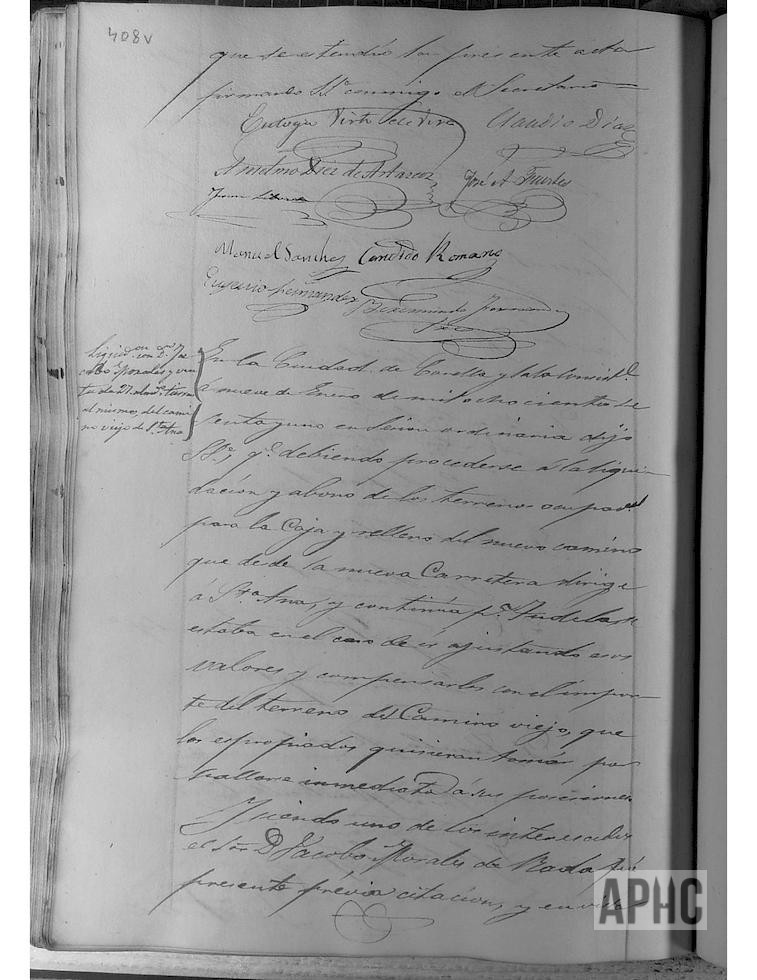 408v
que se estendió la presente acta
firmando SSª conmigo el Secretario =
Eulogio Claudio Diaz
Anselmo Diez de Artazcoz José A. Fuertes
Manuel Sanchez Candido Romano
Eugenio Fernandez Bermundo Fernandez
Liqid.on con D.n Ja
cobo Morales, y ven
ta de
al mismo, del cami
no viejo de Sta Ana
En la Ciudad de Corella y Sala Consist.l
á nueve de Enero de mil ochocientos se
senta y uno en Sesion ordinaria dijo
SSª, q.e debiendo procederse á la liqui
dacion y abono de los terrenos ocupados
para la Caja y relleno del nuevo camino
que desde la nueva Carretera dirige
á Sta Ana, y continúa p.r
estaba en el caso de ir ajustando esos
valores y compensarlos con el impor
te del terreno del Camino viejo, que
los espropiados quisieran tomar por
hallarse inmediato á sus posesiones
Y siendo uno de los interesados
el Sor D. Jacobo Morales de Rada fué
presente prévia citacion, y en vista
APHC